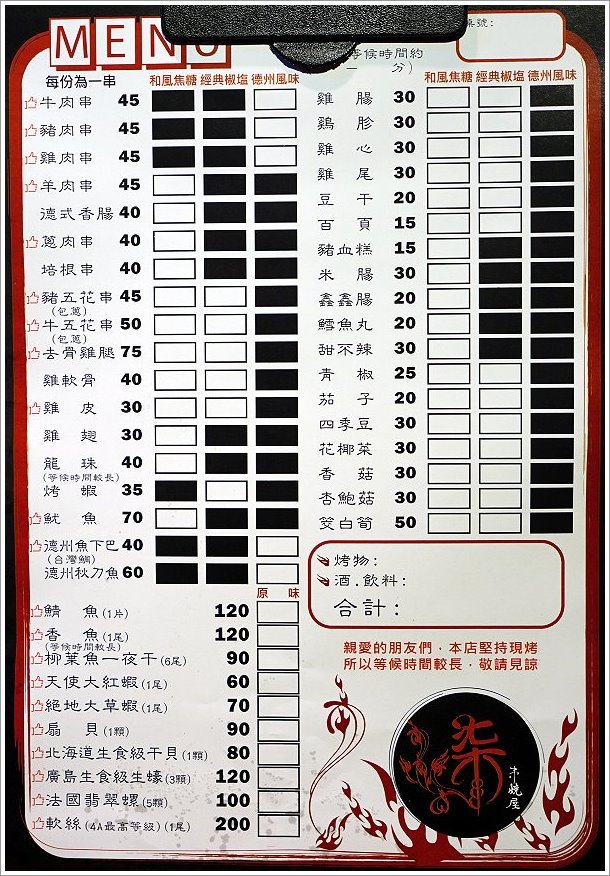 MENU
每份為一串
和風焦糖 經典椒塩 德州風味
牛肉串 45
豬肉串 45
雞肉串 45
羊肉串 45
德式香腸 40
蔥肉串 40
培根串 40
豬五花串 45
(包蔥)
牛五花串 50
(包蔥)
去骨雞腿 75
雞軟骨 40
雞皮 30
雞翅 30
龍珠 40
(等候時間較長)
烤蝦 35
魷魚 70
德州魚下巴 40
(台灣鯛)
德州秋刀魚 60
原味
鯖魚(1片) 120
香魚(1尾) 120
(等候時間較長)
柳葉魚一夜干(6尾) 90
天使大紅蝦(1尾) 60
絕地大草蝦(1尾) 70
扇貝(1顆) 90
北海道生食級干貝(1顆) 80
廣島生食級生蠔(3顆) 120
法國翡翠螺(5顆) 100
軟絲(4A最高等級)(1尾) 200
桌號:
(等候時間約
一 分)
和風焦糖 經典椒塩 德州風味
雞腸 30
鷄胗 30
雞心 30
雞尾 30
豆干 20
百頁 15
豬血糕 15
米腸 30
鑫鑫腸 20
鱈魚丸 20
甜不辣 30
青椒 25
茄子 20
四季豆 30
花椰菜 30
香菇 30
杏鮑菇 30
筊白筍 50
烤物:
酒.飲料:
合計:
親愛的朋友們,本店堅持現烤
所以等候時間較長,敬請見諒
柒
串燒屋